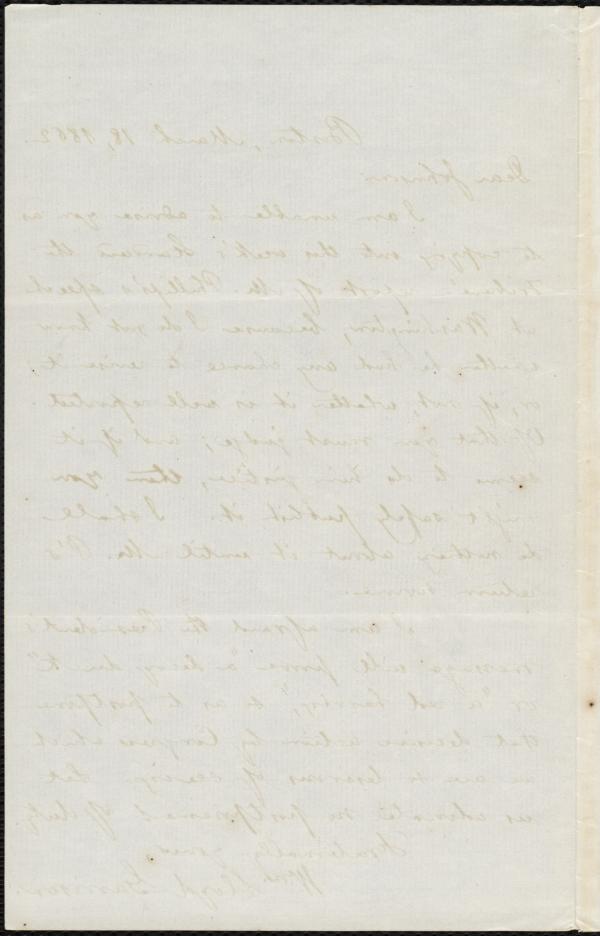 Boston, March 18, 1862.
Dear Johnson:
I am unable to advise you as
to copying into this week's Standard the
Tribune's report of Mr. Phillips's speech
at Washington, because I do not know
whether he had any chance to revise it,
or, if not, whether it is well reported.
Of that you must judge; and if it
seems to do him justice, then you
might safely publish it. I shall
do nothing about it until Mr. P's
return home.
I am afraid the President's
message will prove "a decoy duck"
or "a red herring," so as to postpone
that decisive action by Congress which
we are so desirous of seeing. Let
us advocate no postponement of duty.
Fraternally yours,
Wm. Lloyd Garrison.